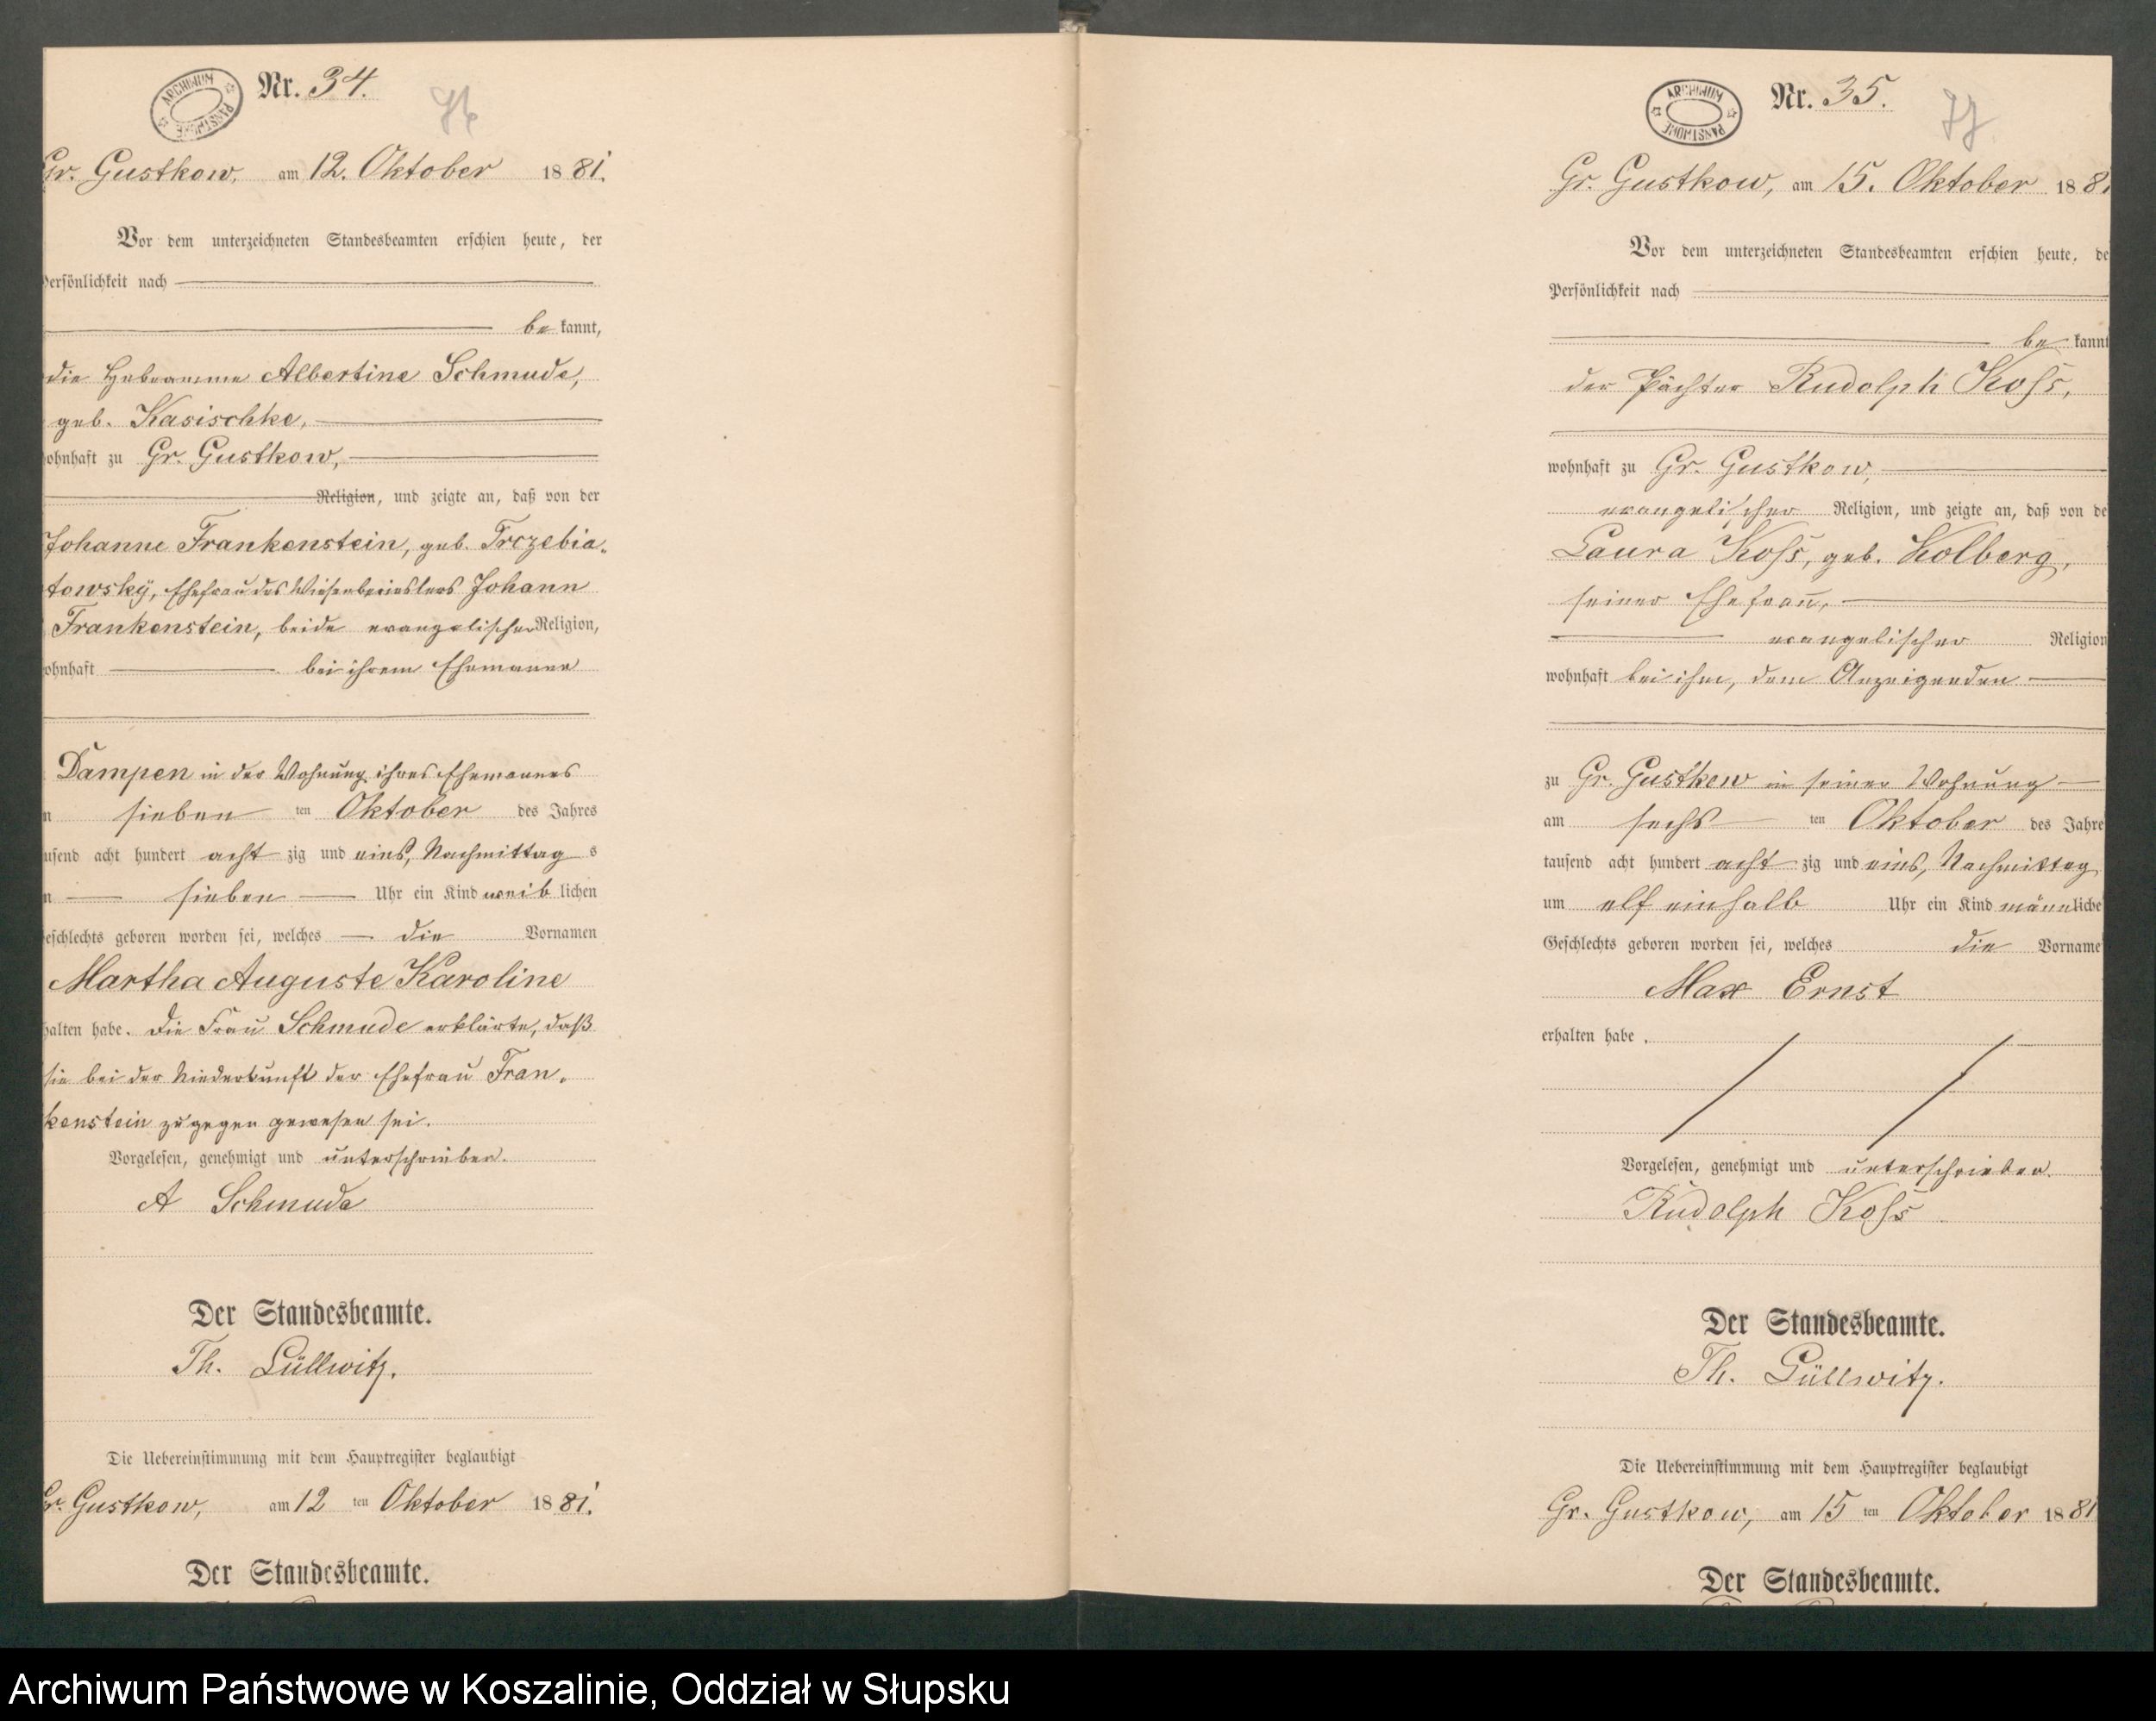 ARCHIWUM PAŃSTWOWE
Nr. 34.
Gr. Gustkow, am 12. Oktober 1881.
Vor dem unterzeichneten Standesbeamten erschien heute, der
Persönlichkeit nach
be kannt,
die Hebeamme Albertine Schmude,
geb. Kasischke,
ohnhaft zu Gr. Gustkow,
Religion, und zeigte an, daß von der
Johanne Frankenstein, geb. Trczebia-
towsky, Ehefrau des Johann
Frankenstein, beide evangelischer Religion,
ohnhaft bei ihrem Ehemanne
Dampen in der Wohnung ihres Ehemannes
sieben ten Oktober des Jahres
usend acht hundert acht zig und eins, Nachmittag s
sieben Uhr ein Kind weib lichen
eschlechts geboren worden sei, welches die Vornamen
Martha Auguste Karoline
halten habe. Die Frau Schmude erklärte, daß
sie bei der Niederkunft der Ehefrau Fran-
kenstein zugegen gewesen sei.
Vorgelesen, genehmigt und unterschrieben.
A Schmude
Der Standesbeamte.
Th. Lüllwitz.
Die Uebereinstimmung mit dem Hauptregister beglaubigt
Gr. Gustkow, am 12 ten Oktober 1881.
Der Standesbeamte.
ARCHIWUM PAŃSTWOWE
Nr. 35.
77
Gr. Gustkow, am 15. Oktober 1881
Vor dem unterzeichneten Standesbeamten erschien heute, de
Persönlichkeit nach
be kannt
der Pächter Rudolph Koss,
wohnhaft zu Gr. Gustkow,
evangelischer Religion, und zeigte an, daß von de
Laura Koss, geb. Kolberg,
seiner Ehefrau,
evangelischer Religion
wohnhaft bei ihm, dem Anzeigenden
zu Gr. Gustkow in seiner Wohnung
am sechs ten Oktober des Jahre
tausend acht hundert acht zig und eins, Nachmittag
um elf einhalb Uhr ein Kind männliche
Geschlechts geboren worden sei, welches die Vorname
Max Ernst
erhalten habe.
Vorgelesen, genehmigt und unterschrieben.
Rudolph Koss
Der Standesbeamte.
Th. Lüllwitz.
Die Uebereinstimmung mit dem Hauptregister beglaubigt
Gr. Gustkow, am 15 ten Oktober 1881
Der Standesbeamte.
Archiwum Państwowe w Koszalinie, Oddział w Słupsku